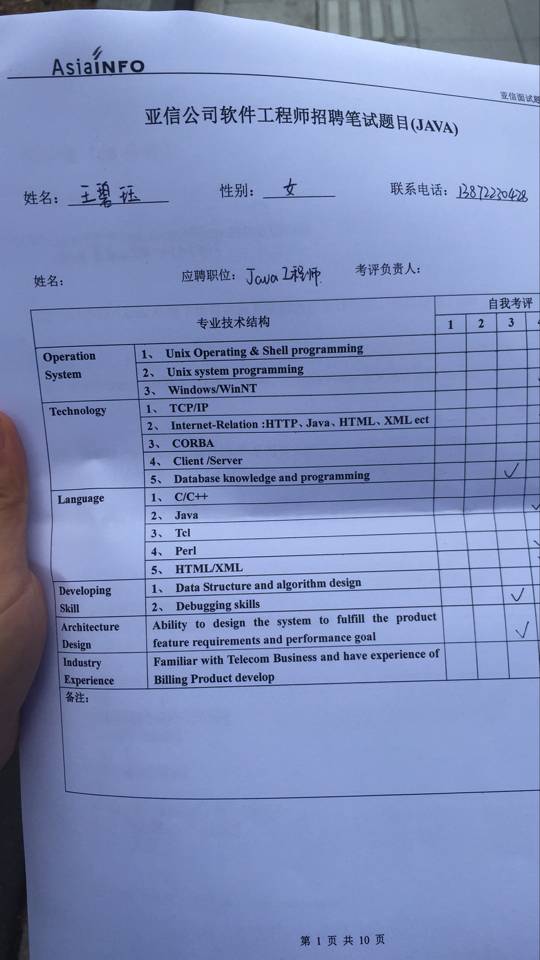 AsiaINFO
亚信面试题
亚信公司软件工程师招聘笔试题目(JAVA)
姓名： 王碧珏 性别： 女 联系电话： 13872220428
姓名： 应聘职位： Java工程师 考评负责人：
专业技术结构 自我考评
1 2 3 4
Operation System
1、 Unix Operating & Shell programming
2、 Unix system programming
3、 Windows/WinNT
Technology
1、 TCP/IP
2、 Internet-Relation :HTTP、Java、HTML、XML ect
3、 CORBA
4、 Client /Server
5、 Database knowledge and programming ✓
Language
1、 C/C++
2、 Java ✓
3、 Tcl
4、 Perl ✓
5、 HTML/XML
Developing Skill
1、 Data Structure and algorithm design
2、 Debugging skills ✓
Architecture Design
Ability to design the system to fulfill the product
feature requirements and performance goal ✓
Industry Experience
Familiar with Telecom Business and have experience of
Billing Product develop
备注：
第 1 页 共 10 页